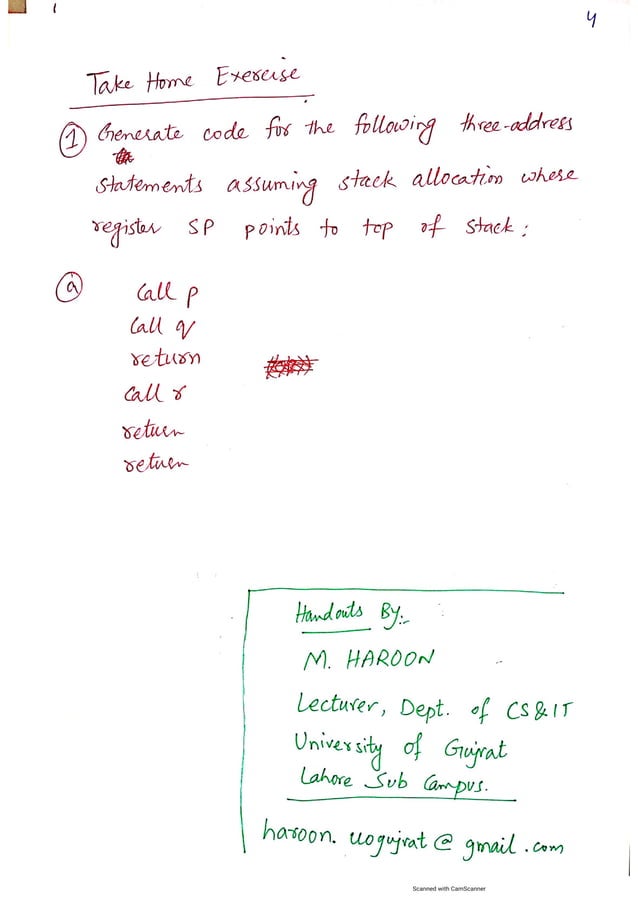 4
Take Home Exercise
① Generate code for the following three-address
statements assuming stack allocation where
register SP points to top of stack:
ⓐ call p
call q
return
call r
return
return
Handouts By:-
M. HAROON
Lecturer, Dept. of CS & IT
University of Gujrat
Lahore Sub Campus.
haroon.uogujrat@gmail.com
Scanned with CamScanner